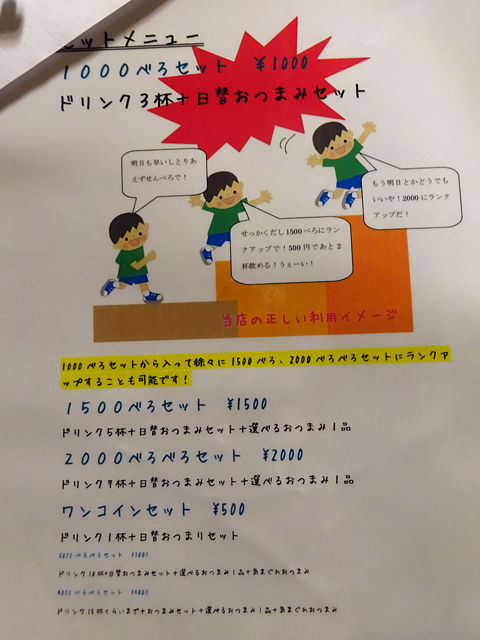 セットメニュー
1000べろセット ¥1000
ドリンク3杯+日替おつまみセット
明日も早いしとりあ
えずせんべろで!
もう明日とかどうでも
いいや!2000にランク
アップだ!
せっかくだし1500べろにラン
クアップで!500円であと2
杯飲める!うぇーい!
当店の正しい利用イメージ
1000べろセットから入って徐々に1500べろ、2000べろべろセットにランクア
ップすることも可能です!
1500べろセット ¥1500
ドリンク5杯+日替おつまみセット+選べるおつまみ1品
2000べろべろセット ¥2000
ドリンク7杯+日替おつまみセット+選べるおつまみ1品
ワンコインセット ¥500
ドリンク1杯+日替おつまりセット
3000べろべろセット ¥3000
ドリンク10杯+日替おつまみセット+選べるおつまみ1品+気まぐれおつまみ
4000べろべろセット ¥4000
ドリンク15杯くらいまで+おつまみセット+選べるおつまみ1品+気まぐれおつまみ